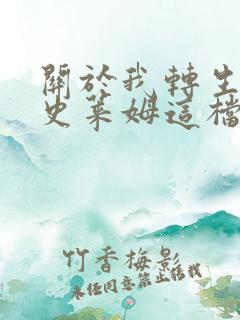 關於我轉生
史萊姆這檔
竹香梅影
未經同意禁止轉載